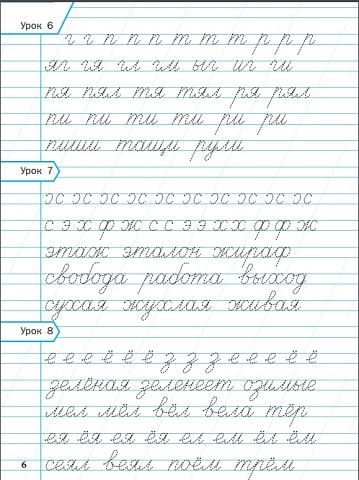 Урок 6
г г п п п т т т р р р
яг гя гл гм ыг иг ги
пя пял тя тял ря рял
пи пи ти ти ри ри
пиши тащи рули
Урок 7
ɔc ɔc ɔc ɔc ɔc ɔc ɔc ɔc ɔc ɔc
с э х ф ж с с э э х х ф ф ж
этаж эталон жираф
свобода работа выход
сухая жухлая живая
Урок 8
е е е ё ё ё з з з е е е ё ё
зелёная зеленеет озимые
мел мёл вёл вела тёр
ея ёя ея ёя ел ем ёл ём
сеял веял поём трём
6